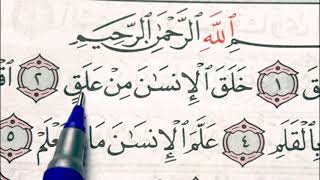 ـمِ ٱللَّهِ ٱلرَّحْمَٰنِ ٱلرَّحِيمِ
ـقَ ١ خَلَقَ ٱلْإِنسَٰنَ مِنْ عَلَقٍ ٢ ٱقْـ
بِٱلْقَلَمِ ٤ عَلَّمَ ٱلْإِنسَٰنَ مَا يَعْلَمْ ٥